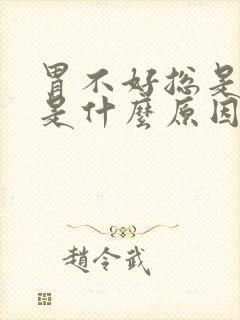 胃不好总是
是什麼原因
趙令武